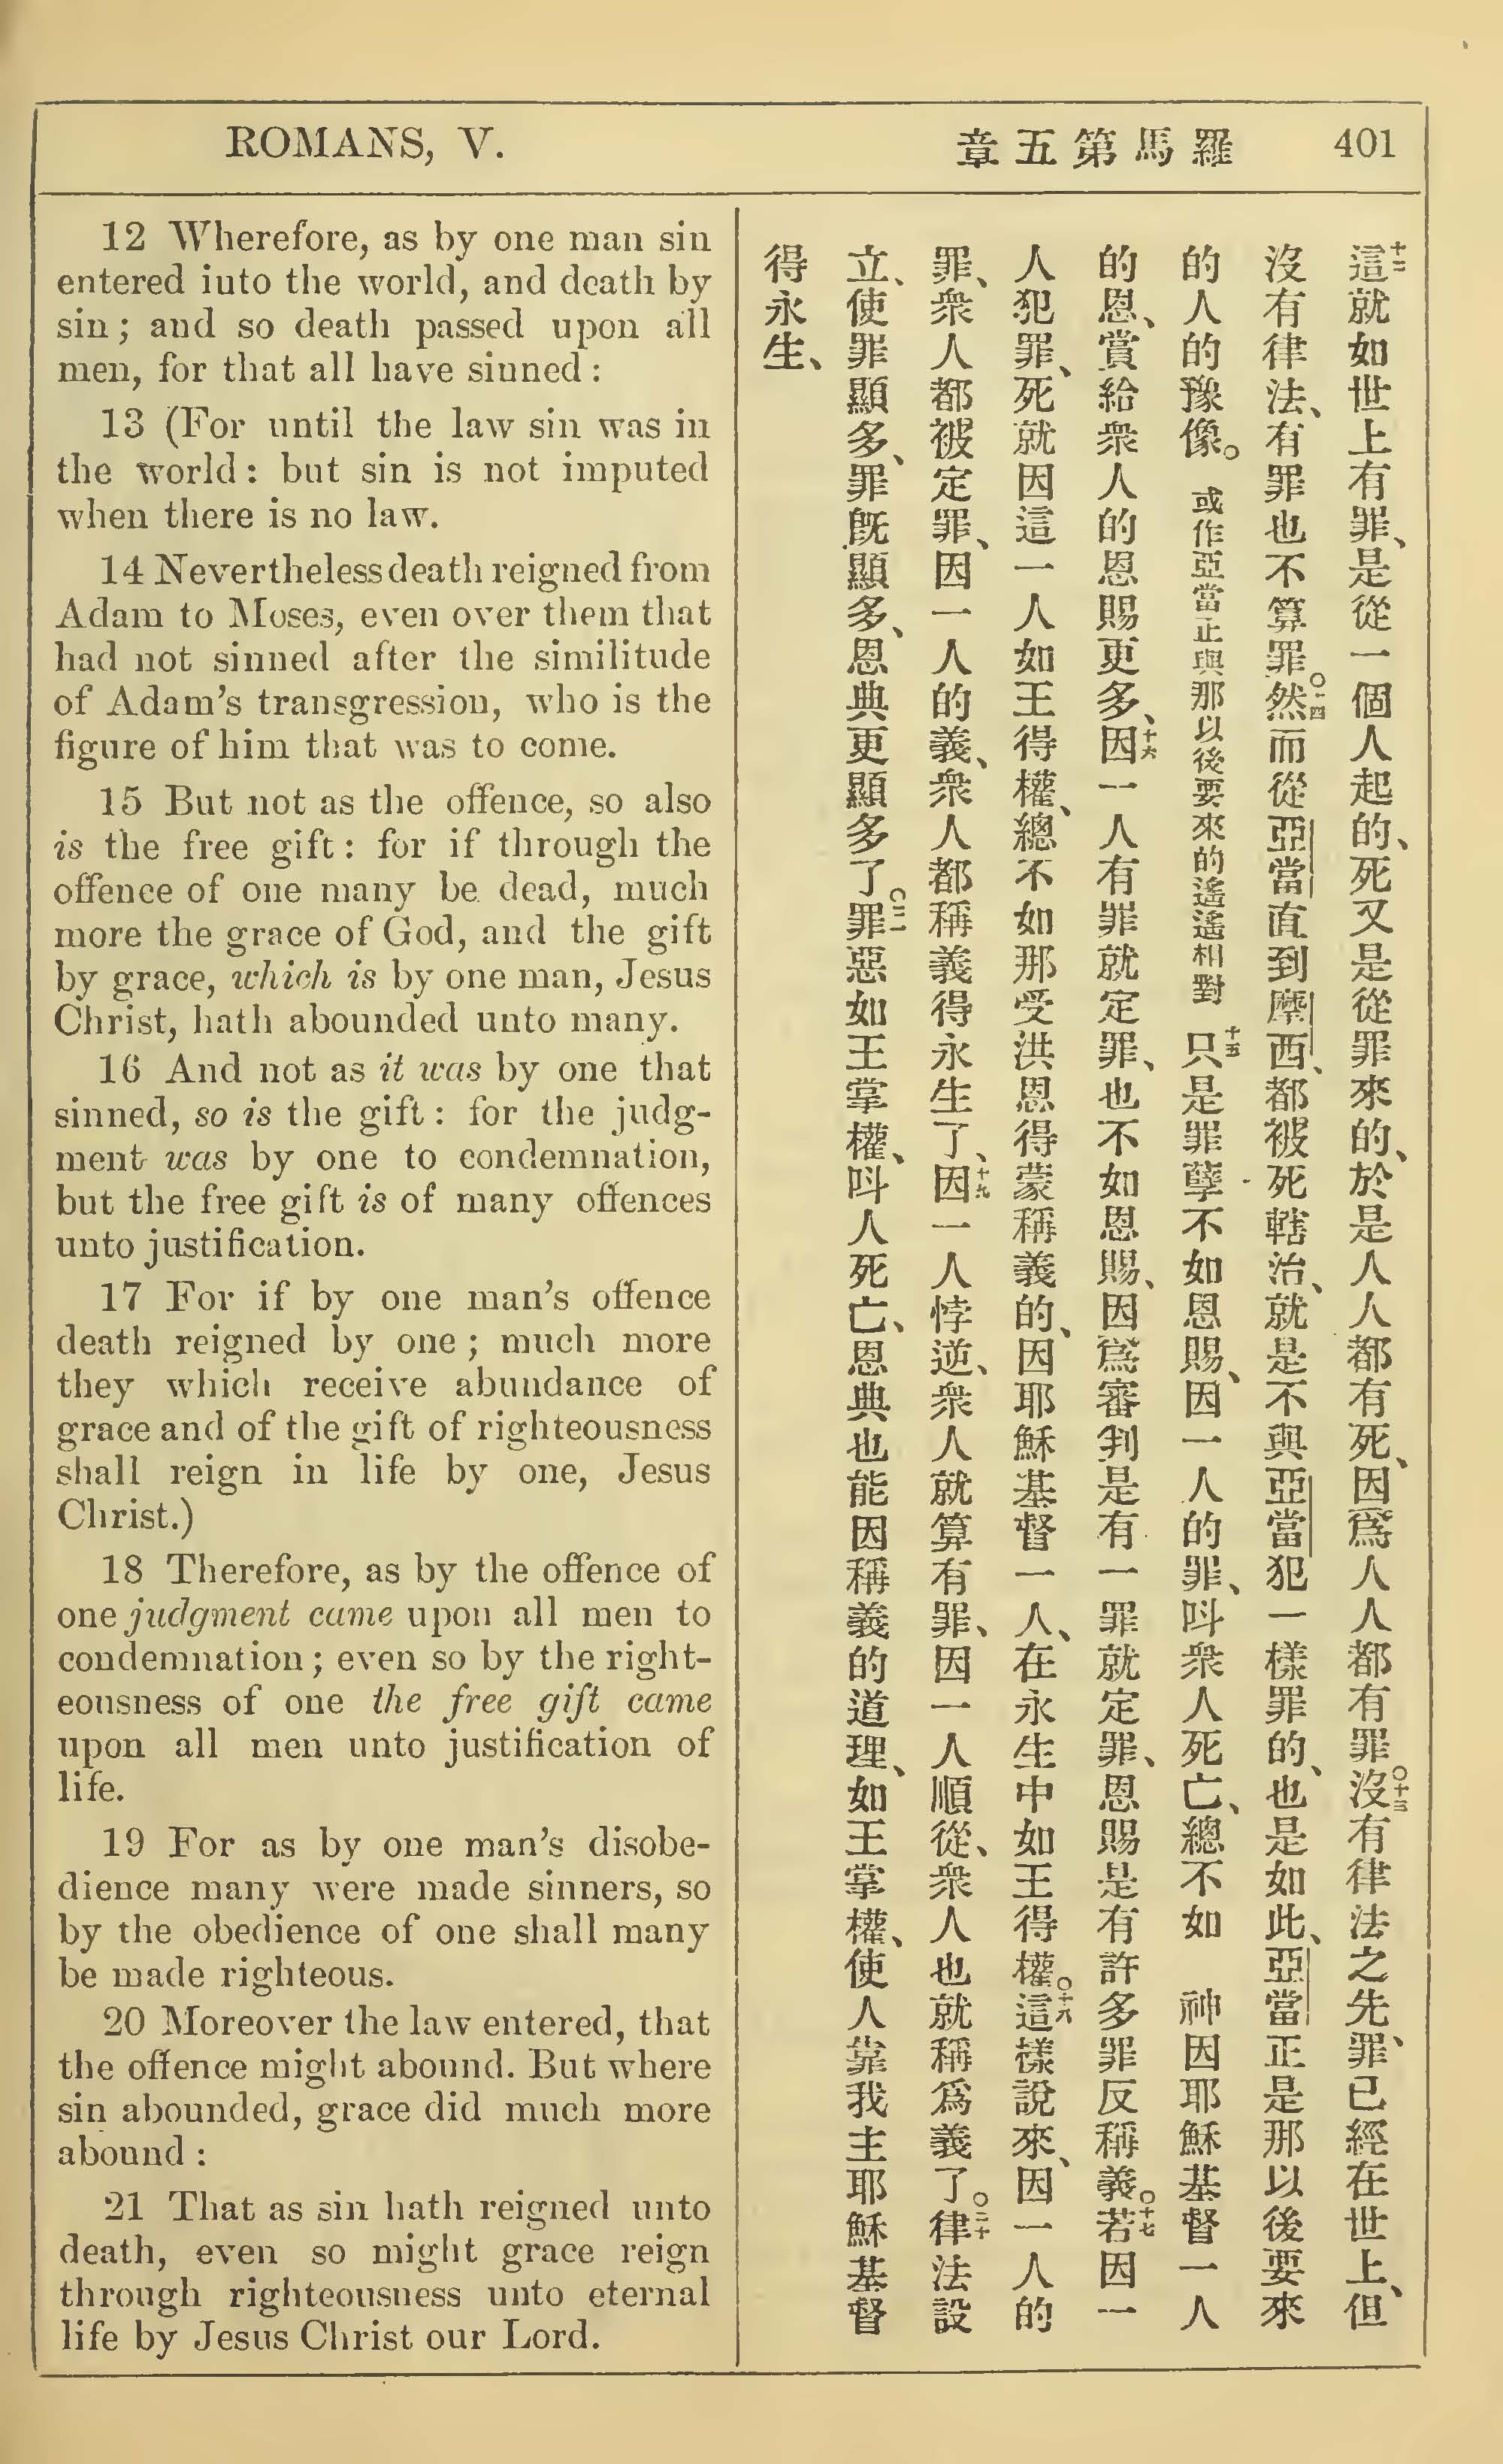 ROMANS, V.
羅馬第五章
401
12 Wherefore, as by one man sin
entered iuto the world, and death by
sin; and so death passed upon all
men, for that all have sinned:
13 (For until the law sin was in
the world: but sin is not imputed
when there is no law.
14 Nevertheless death reigned from
Adam to Moses, even over them that
had not sinned after the similitude
of Adam's transgression, who is the
figure of him that was to come.
15 But not as the offence, so also
is the free gift: for if through the
offence of one many be dead, much
more the grace of God, and the gift
by grace, which is by one man, Jesus
Christ, hath abounded unto many.
16 And not as it was by one that
sinned, so is the gift: for the judg-
ment was by one to condemnation,
but the free gift is of many offences
unto justification.
17 For if by one man's offence
death reigned by one; much more
they which receive abundance of
grace and of the gift of righteousness
shall reign in life by one, Jesus
Christ.)
18 Therefore, as by the offence of
one judgment came upon all men to
condemnation; even so by the right-
eousness of one the free gift came
upon all men unto justification of
life.
19 For as by one man's disobe-
dience many were made sinners, so
by the obedience of one shall many
be made righteous.
20 Moreover the law entered, that
the offence might abound. But where
sin abounded, grace did much more
abound:
21 That as sin hath reigned unto
death, even so might grace reign
through righteousness unto eternal
life by Jesus Christ our Lord.
十二這就如世上有罪、是從一個人起的、死又是從罪來的、於是人人都有死、因爲人人都有罪。十三沒有律法之先罪、已經在世上、但
沒有律法、有罪也不算罪。十四然而從亞當直到摩西、都被死轄治、就是不與亞當犯一樣罪的、也是如此、亞當正是那以後要來
的人的豫像。或作亞當正與那以後要來的遙遙相對 十五只是罪孽不如恩賜、因一人的罪、呌衆人死亡、總不如 神因耶穌基督一人
的恩、賞給衆人的恩賜更多、十六因一人有罪就定罪、也不如恩賜、因爲審判是有一罪就定罪、恩賜是有許多罪反稱義。十七若因一
人犯罪、死就因這一人如王得權、總不如那受洪恩得蒙稱義的、因耶穌基督一人、在永生中如王得權。十八這樣說來、因一人的
罪、衆人都被定罪、因一人的義、衆人都稱義得永生了、十九因一人悖逆、衆人就算有罪、因一人順從、衆人也就稱爲義了。二十律法設
立、使罪顯多、罪旣顯多、恩典更顯多了。二一罪惡如王掌權、呌人死亡、恩典也能因稱義的道理、如王掌權、使人靠我主耶穌基督
得永生、